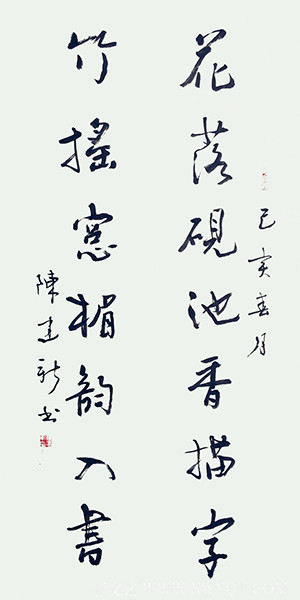 己亥春月
花落硯池香描字
竹搖窓楣韵入書
陳建新书